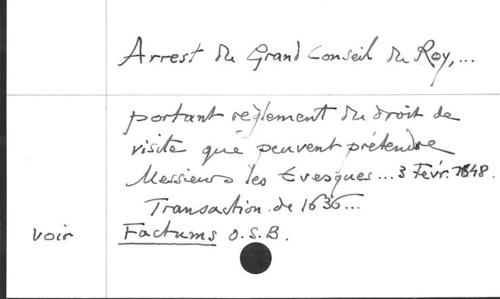 Arrest du Grand Conseil du Roy,...
portant règlement du droit de
visite que peuvent prétendre
Messieurs les Evesques... 3 Févr. 1648.
Transaction de 1636...
voir Factums O.S.B.